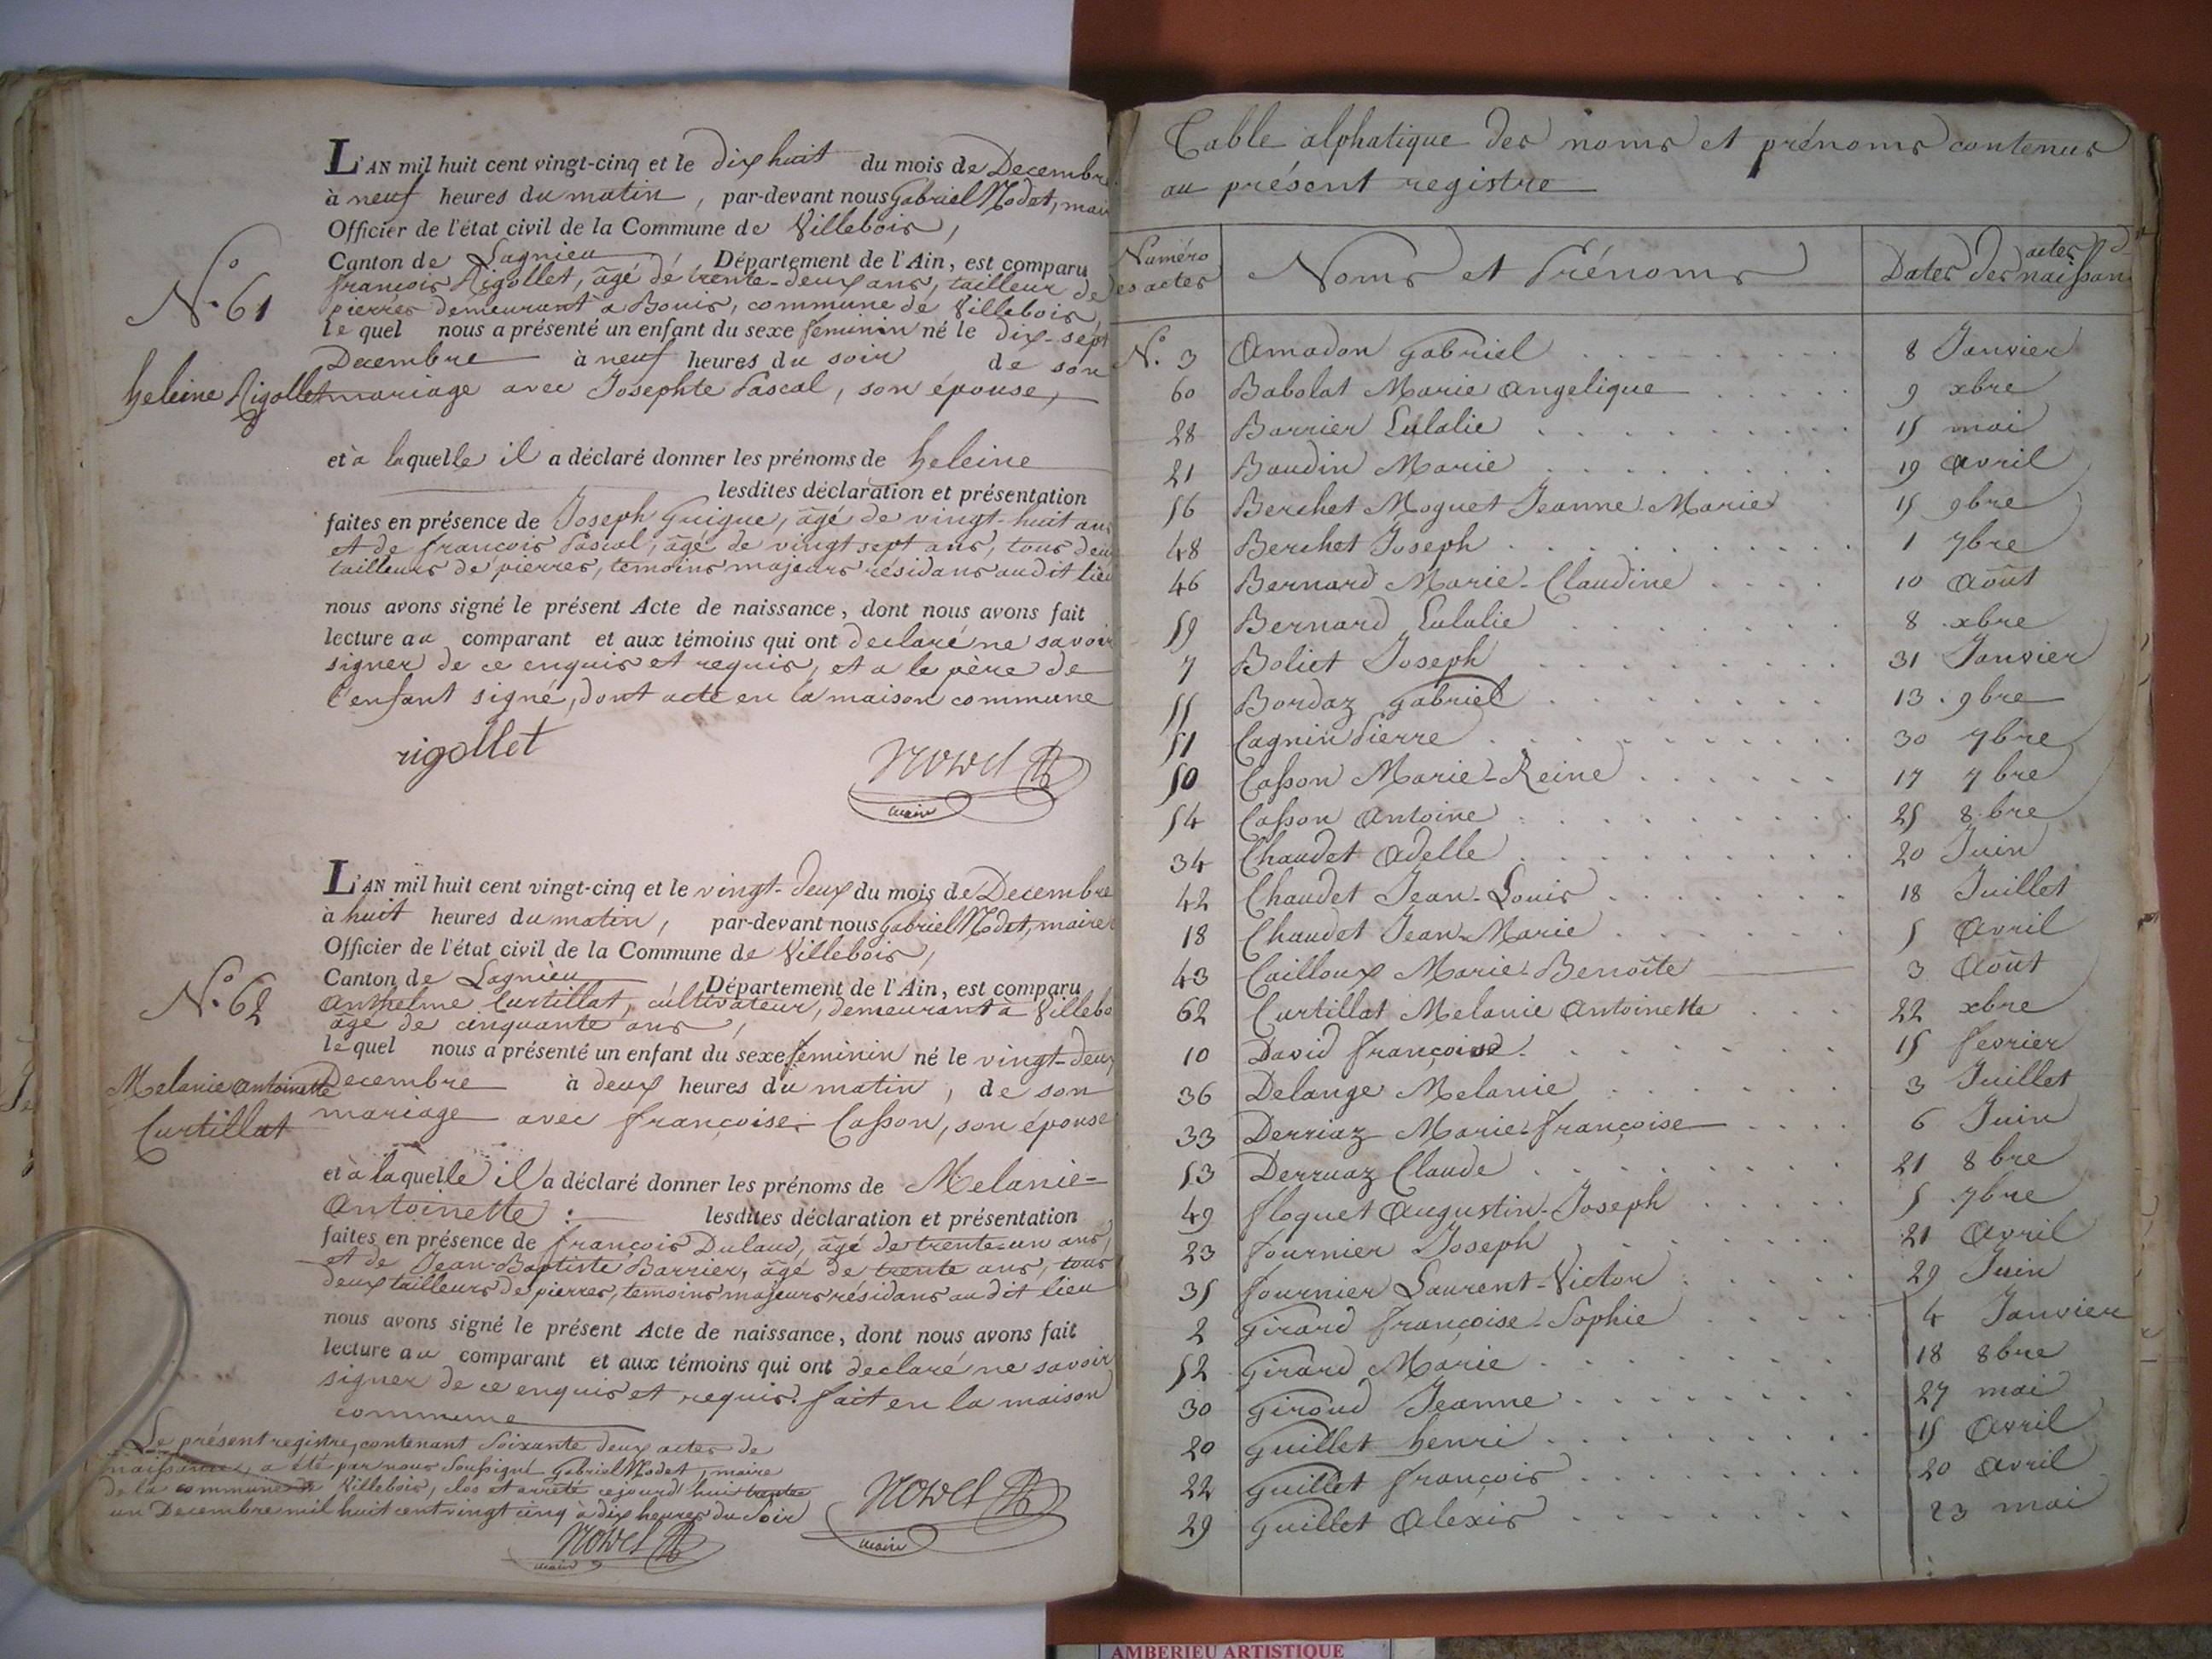 L'AN mil huit cent vingt-cinq et le dix huit du mois de Decembre
à neuf heures du matin, par-devant nous Gabriel Modet, mair
Officier de l'état civil de la Commune de Villebois,
Canton de Lagnieu, Département de l'Ain, est comparu
françois Rigollet, âgé de trente-deux ans, tailleur de
pierres demeurant à Bouis, commune de Villebois,
le quel nous a présenté un enfant du sexe feminin né le dix-sept
Decembre à neuf heures du soir de son
mariage avec Josephte Pascal, son épouse,
N.º 61
heleine Rigollet
et à laquelle il a déclaré donner les prénoms de heleine
lesdites déclaration et présentation
faites en présence de Joseph Guigue, âgé de vingt-huit ans
et de françois Pascal, âgé de vingt sept ans, tous deux
tailleurs de pierres, temoins majeurs résidans audit lieu
nous avons signé le présent Acte de naissance, dont nous avons fait
lecture au comparant et aux témoins qui ont declaré ne savoir
signer de ce enquis et requis, et a le père de
l'enfant signé, dont acte en la maison commune
rigollet
maire
L'AN mil huit cent vingt-cinq et le vingt-deux du mois de Decembre
à huit heures du matin, par-devant nous Gabriel Modet, maire
Officier de l'état civil de la Commune de Villebois,
Canton de Lagnieu, Département de l'Ain, est comparu
Anthelme Curtillat, cultivateur, demeurant à Villebo
âgé de cinquante ans,
le quel nous a présenté un enfant du sexe feminin né le vingt-deux
Decembre à deux heures du matin, de son
mariage avec françoise Casson, son épouse
N.º 62
Melanie Antoinette
Curtillat
et à laquelle il a déclaré donner les prénoms de Melanie-
Antoinette : lesdites déclaration et présentation
faites en présence de françois Dulaud, âgé de trente-un ans,
et de Jean-Baptiste Barrier, âgé de trente ans, tous
deux tailleurs de pierres, temoins majeurs résidans au dit lieu
nous avons signé le présent Acte de naissance, dont nous avons fait
lecture au comparant et aux témoins qui ont declaré ne savoir
signer de ce enquis et requis. fait en la maison
commune
Le présent registre, contenant Soixante deux actes de
naissance, a été par nous Soussigné Gabriel Modet, maire
de la commune de Villebois, clos et arrêté cejourd'hui trente
un Decembre mil huit cent vingt cinq à dix heures du Soir
maire
maire
Table alphatique des noms et prénoms contenus
au présent registre
Numéro des actes Noms et Prénoms Dates des actes d naissan
N.º 3 Amadon Gabriel 8 Janvier
60 Babolat Marie Angelique 9 xbre
28 Barrier Eulalie 15 mai
21 Baudin Marie 19 Avril
56 Berchet Moguet Jeanne Marie 15 9bre
48 Berchet Joseph 1 7bre
46 Bernard Marie-Claudine 10 Août
59 Bernard Eulalie 8 xbre
7 Boliet Joseph 31 Janvier
55 Bordaz Gabriel 13 9bre
51 Cagnin Pierre 30 7bre
50 Casson Marie-Reine 17 7bre
54 Casson Antoine 25 8bre
34 Chaudet Adelle 20 Juin
42 Chaudet Jean-Louis 18 Juillet
18 Chaudet Jean-Marie 5 Avril
43 Cailloux Marie-Benoîte 3 Août
62 Curtillat Melanie Antoinette 22 xbre
10 David françoise 15 fevrier
36 Delange Melanie 3 Juillet
33 Derriaz Marie-françoise 6 Juin
53 Derruaz Claude 21 8bre
49 floquet Augustin-Joseph 5 7bre
23 fournier Joseph 21 Avril
35 fournier Laurent-Victor 29 Juin
2 Girard françoise-Sophie 4 Janvier
52 Girard Marie 18 8bre
30 Giroud Jeanne 27 mai
20 Guillet henri 15 Avril
22 Guillet françois 20 Avril
29 Guillet Alexis 23 mai
AMBERIEU ARTISTIQUE